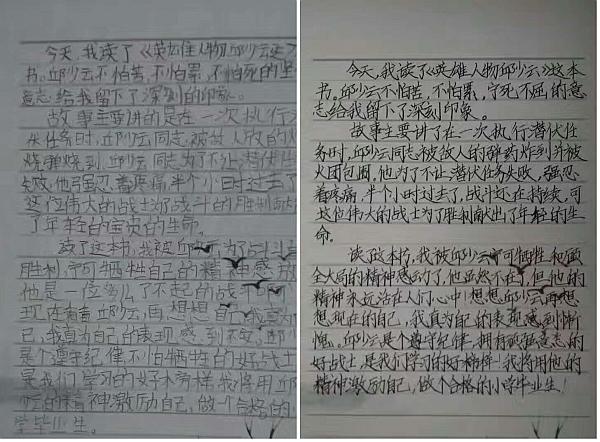 今天，我读了《英雄人物邱少云》
书。邱少云不怕苦，不怕累，不怕死的坚
意志给我留下了深刻的印象。
故事主要讲的是在一次执行
伏任务时，邱少云同志被敌人放的
烧弹烧到，邱少云同志为了不让潜伏任
失败，他强忍着疼痛，半个小时过去了
这位伟大的战士为了战斗的胜利献
了年轻的宝贵的生命。
读了这本书，我被邱少云为了战斗
胜利，宁可牺牲自己的精神感
他是一位多么了不起的战
现在看看邱少云，再想想自己，我真为
己，我真为自己的表现感到不安，邱少
是个遵守纪律不怕牺牲的好战士
是我们学习的好榜样，我将用邱
少云的精神激励自己，做个合格的
学毕业生。
今天，我读了《英雄人物邱少云》这本
书。邱少云不怕苦，不怕累，宁死不屈的意
志给我留下了深刻印象。
故事主要讲了在一次执行潜伏任
务时，邱少云同志被敌人的炸到并被
火团包围。他为了不让潜伏任务失败，强忍
着疼痛，半个小时过去了，战斗还在持续，可
这位伟大的战士为了胜利献出了年轻的生
命。
读了这本书，我被邱少云宁可牺牲和做
全大局的精神感动了，他虽然不在了，但他的
精神永远活在人们心中！想想邱少云再想
想现在的自己，我真为自己的表现感到惭
愧。邱少云是个遵守纪律，拥有顽强意志的
好战士，是我们学习的好榜样！我将用他的
精神激励自己，做个合格的小学毕业生！